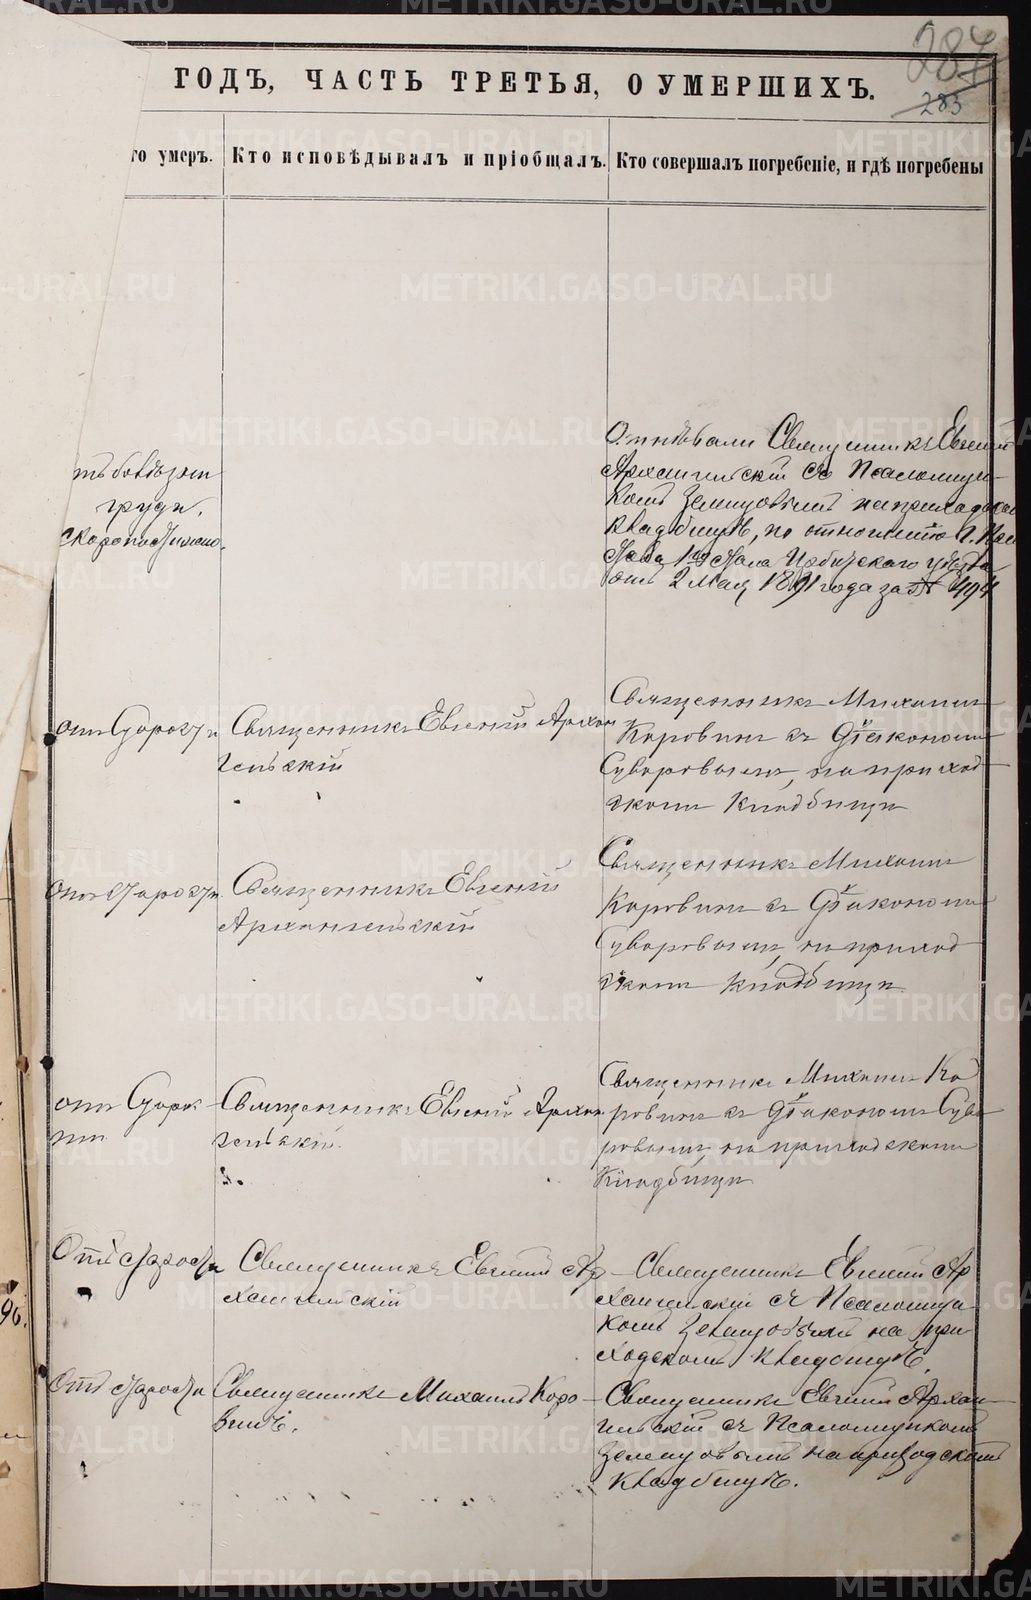 287
283
ГОДЪ, ЧАСТЬ ТРЕТЬЯ, О УМЕРШИХЪ.
го умеръ.
Кто исповѣдывалъ и пріобщалъ.
Кто совершалъ погребеніе, и гдѣ погребены
груди,
скоропостижно.
Отпѣвали Священникъ Евгеній
Архангельскій съ Псаломщи-
комъ Земцовымъ на приходском
кладбищѣ, по отношенію
1го Стана Ирбитскаго уѣзда
отъ 2 Мая 1891 года за № 494
отъ Старости
Священникъ Евгеній Архан
гельскій
Священникъ Михаилъ
Коровинъ съ Діакономъ
Суворовымъ, на приход
скомъ Кладбищи
отъ старости
Священникъ Евгеній
Архангельскій
Священникъ Михаилъ
Коровинъ съ Діакономъ
Суворовымъ, на приход
скомъ кладбищи
отъ Старос
ти
Священникъ Евгеній Архан
гельскій
Священникъ Михаилъ Ко
ровинъ съ Діакономъ Суво
ровымъ, на приходскомъ
Кладбищи
Отъ старости
Священникъ Евгеній Ар
хангельскій
Священникъ Евгеній Ар
хангельскій съ Псаломщи
комъ Земцовымъ на при
ходскомъ кладбищѣ.
96.
Отъ старости
Священникъ Михаилъ Коро
винъ.
Священникъ Евгеній Архан
гельскій съ Псаломщикомъ
Земцовымъ на приходскомъ
кладбищѣ.
METRIKI.GASO-URAL.RU